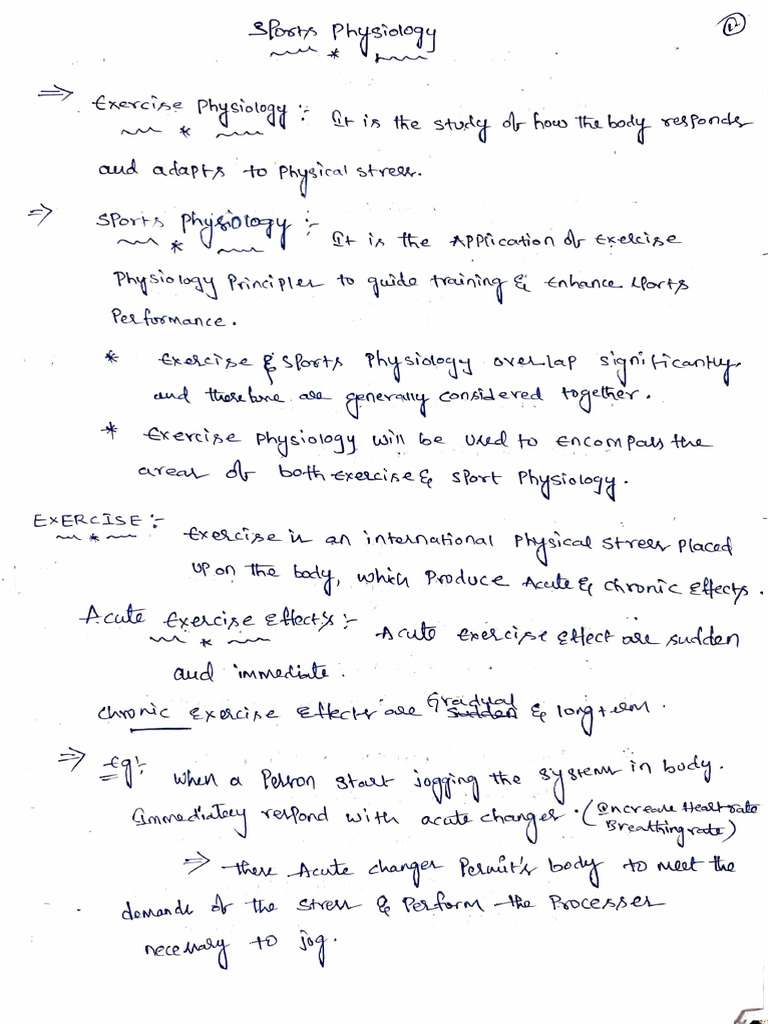 Sports Physiology
12
⇒ Exercise Physiology :- It is the study of how the body responds
and adapts to Physical stress.
⇒ Sports Physiology :- It is the Application of Exercise
Physiology Principles to guide training & Enhance sports
Performance.
* Exercise & Sports Physiology overlap significantly
and therefore are generally considered together.
* Exercise physiology will be used to encompass the
areas of both exercise & sport Physiology.
EXERCISE :- Exercise is an international Physical stress placed
upon the body, which Produce Acute & chronic Effects.
Acute Exercise Effects :- Acute exercise effect are sudden
and immediate.
Chronic Exercise Effects are Gradual sudden & long term.
⇒ Eg :- when a Person start jogging the systems in body.
Immediatey respond with acute changes. (Increase Heart rate
Breathing rate)
⇒ these Acute changes Permit's body to meet the
demands of the stress & Perform the Processes
necessary to jog.